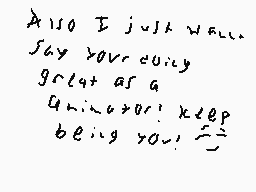 Also I just wanna
say your doing
great as a
animator! keep
being you!